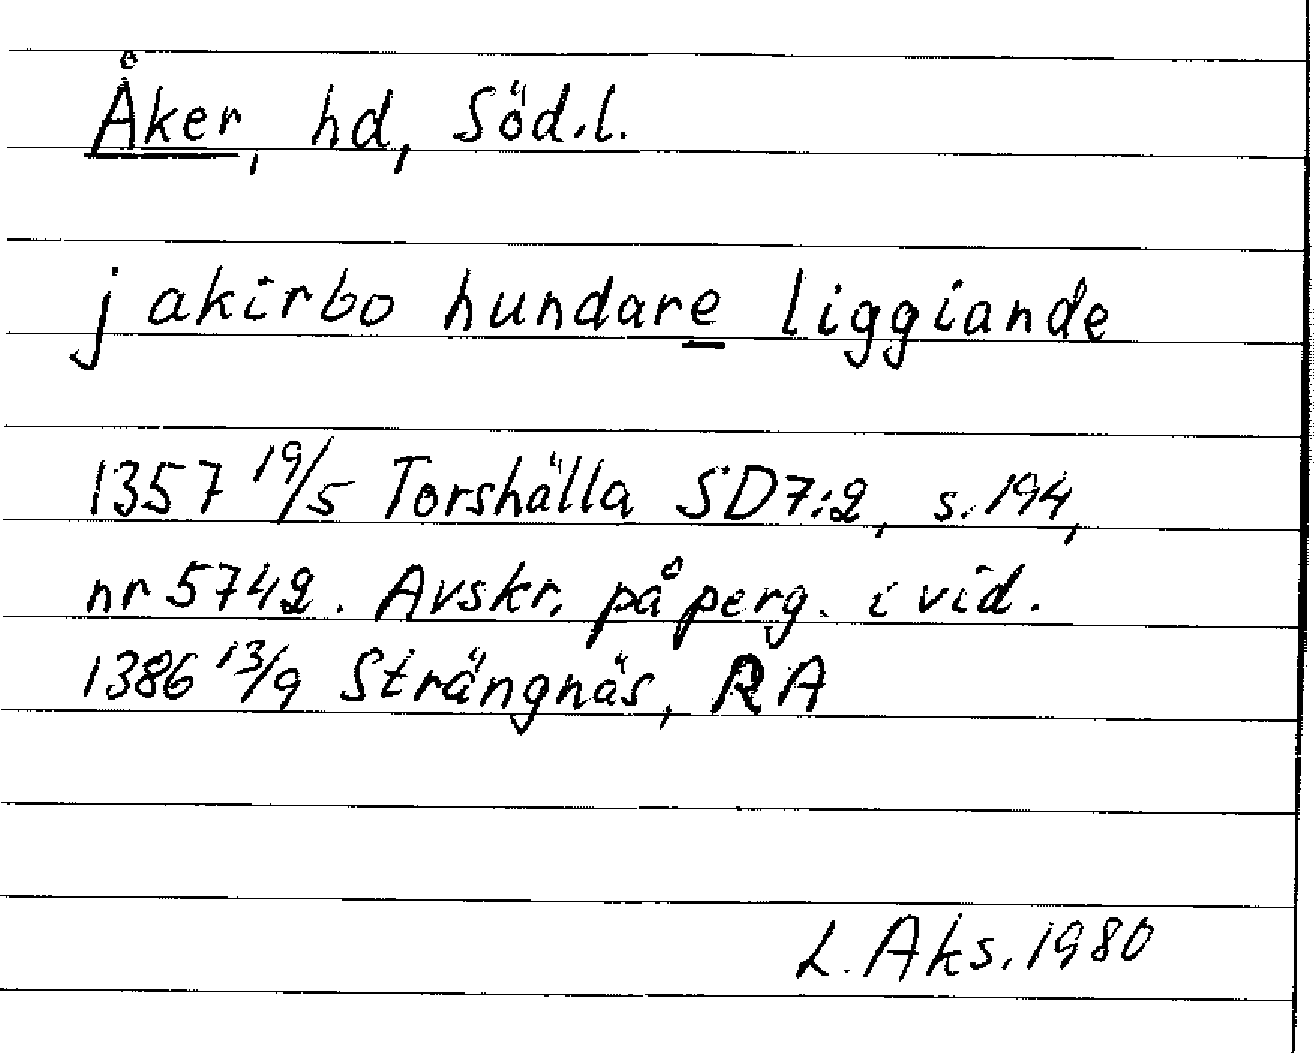 Åker, hd, Söd.l.
j akirbo hundare liggiande
1357 19/5 Torshälla SD7:2, s. 194,
nr 5742. Avskr. på perg. i vid.
1386 13/9 Strängnäs, RA
L. Aks. 1980